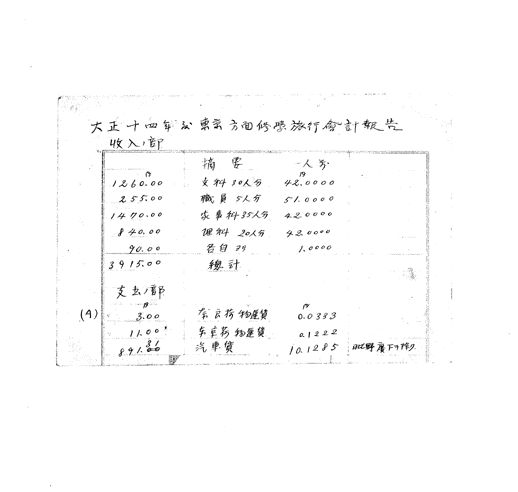 大正十四年度東京方面修学旅行会計報告
収入ノ部
摘要 一人分
円 円
1260.00 文科30人分 42.0000
255.00 職員5人分 51.0000
1470.00 家事科35人分 42.0000
840.00 理科 20人分 42.0000
90.00 各自ヨリ 1.0000
3915.00 総計
支出ノ部
円 円
(4) 3.00 奈良荷物運賃 0.0333
11.00 東京荷物運賃 0.1222
891.00 汽車賃 10.1285
31